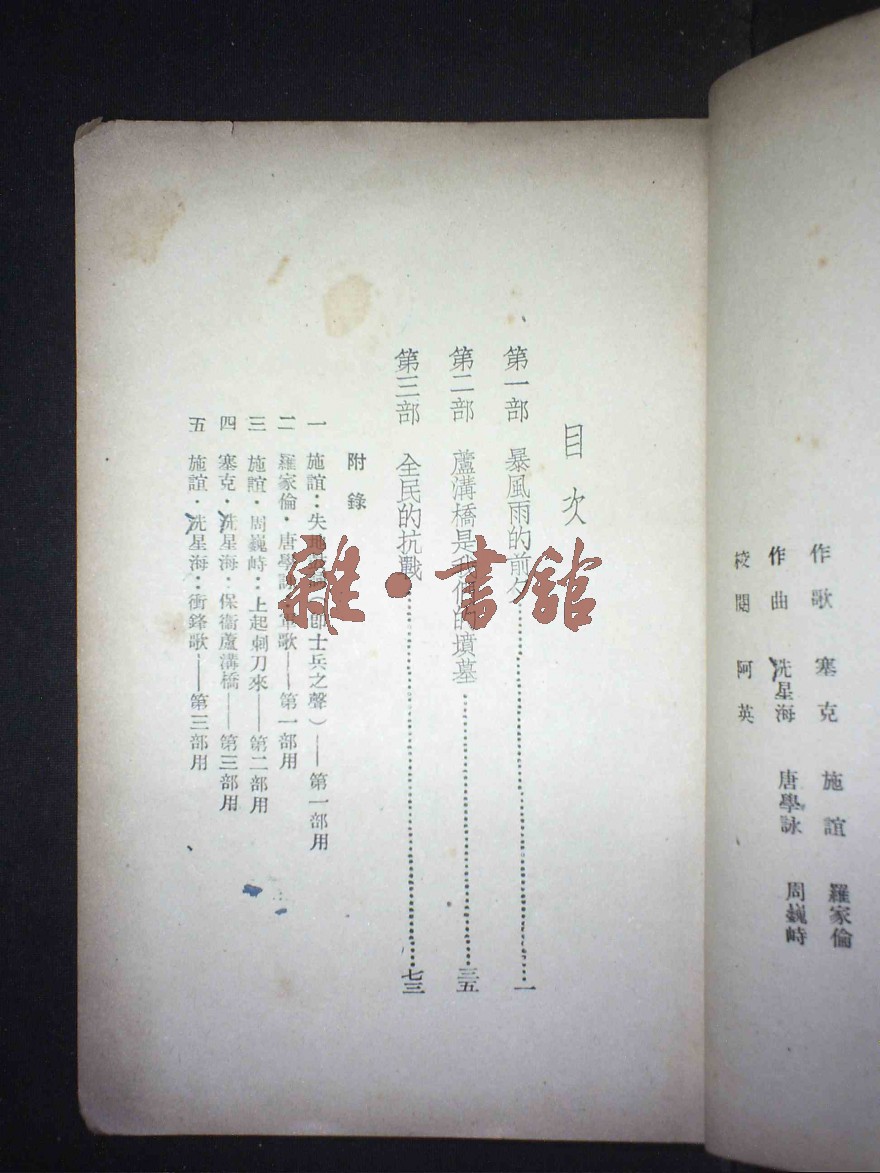 作歌 塞克 施誼 羅家倫
作曲 冼星海 唐學詠 周巍峙
校閱 阿英
目次
第一部 暴風雨的前夕……一
第二部 蘆溝橋是我們的墳墓……三五
第三部 全民的抗戰……七三
附錄
一 施誼：失地（即士兵之聲）——第一部用
二 羅家倫・唐學詠軍歌——第一部用
三 施誼・周巍峙：上起刺刀來——第二部用
四 塞克・冼星海・保衞蘆溝橋——第三部用
五 施誼・冼星海：衝鋒歌——第三部用
雜・書館